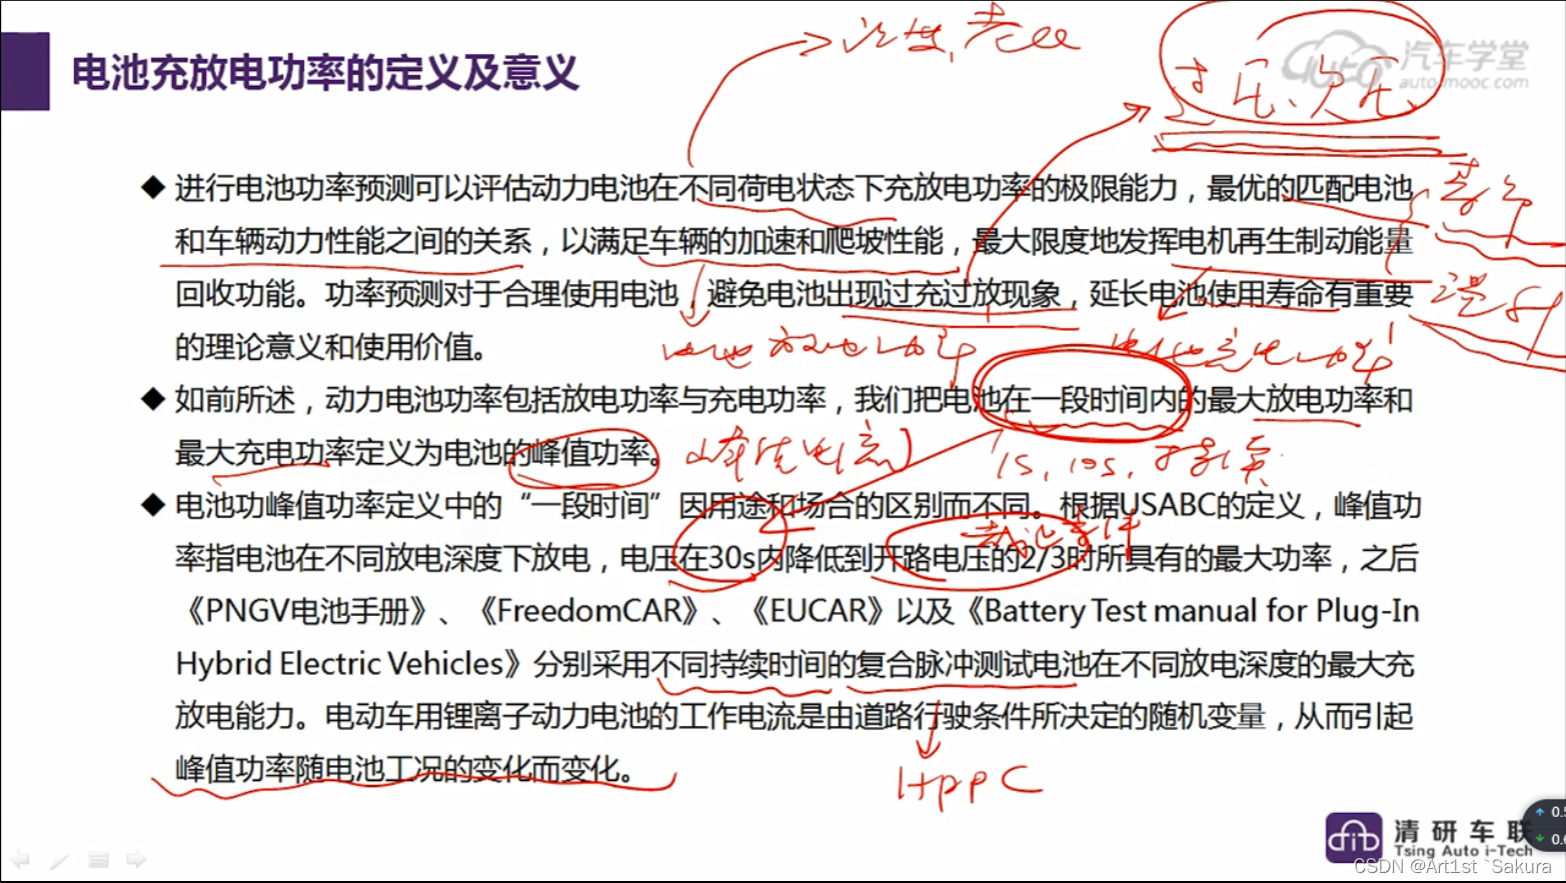 电池充放电功率的定义及意义
汽车学堂
auto-mooc.com
温度、老化
过压、欠压
◆ 进行电池功率预测可以评估动力电池在不同荷电状态下充放电功率的极限能力，最优的匹配电池
和车辆动力性能之间的关系，以满足车辆的加速和爬坡性能，最大限度地发挥电机再生制动能量
回收功能。功率预测对于合理使用电池，避免电池出现过充过放现象，延长电池使用寿命有重要
的理论意义和使用价值。
电池放电功率
电池充电功率
◆ 如前所述，动力电池功率包括放电功率与充电功率，我们把电池在一段时间内的最大放电功率和
最大充电功率定义为电池的峰值功率。
1s、10s、
◆ 电池功峰值功率定义中的“一段时间”因用途和场合的区别而不同。根据USABC的定义，峰值功
率指电池在不同放电深度下放电，电压在30s内降低到开路电压的2/3时所具有的最大功率，之后
《PNGV电池手册》、《FreedomCAR》、《EUCAR》以及《Battery Test manual for Plug-In
Hybrid Electric Vehicles》分别采用不同持续时间的复合脉冲测试电池在不同放电深度的最大充
放电能力。电动车用锂离子动力电池的工作电流是由道路行驶条件所决定的随机变量，从而引起
峰值功率随电池工况的变化而变化。
HPPC
清研车联
Tsing Auto i-Tech
CSDN @Art1st `Sakura